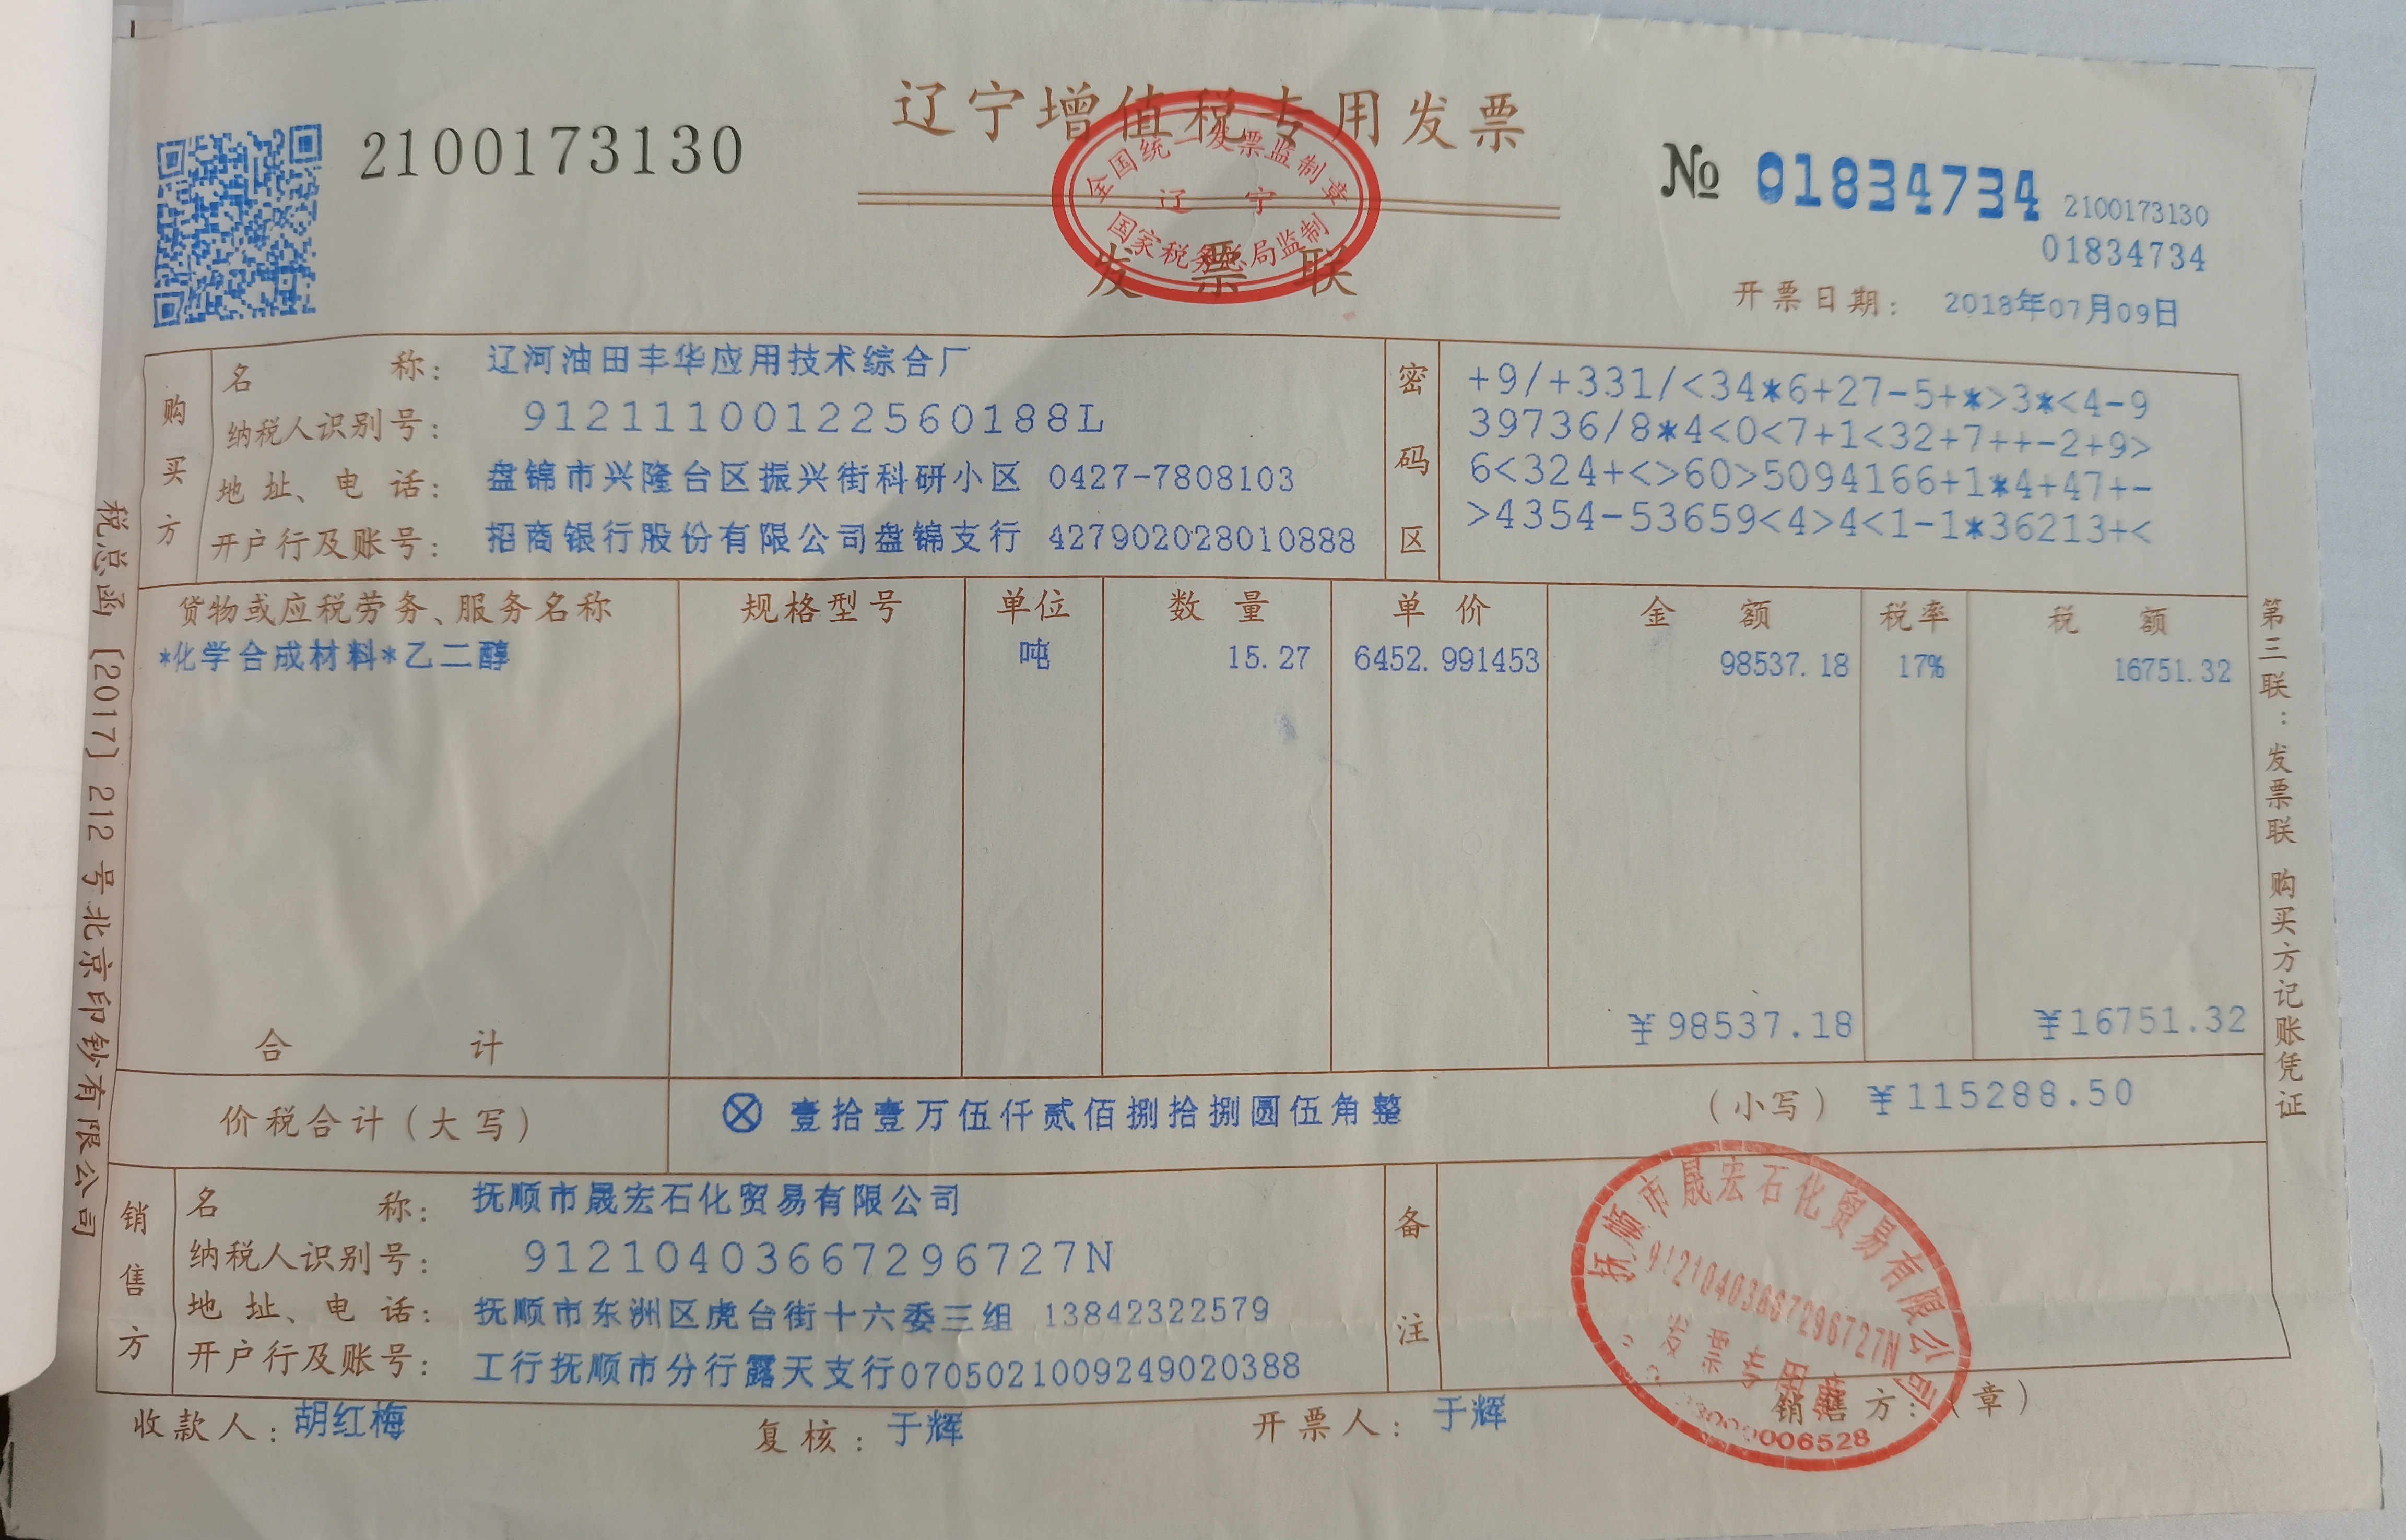 辽宁增值税专用发票
2100173130
全国统一发票监制章
辽宁
国家税务总局监制
发票联
№ 01834734
2100173130
01834734
开票日期： 2018年07月09日
购买方
名称： 辽河油田丰华应用技术综合厂
纳税人识别号： 91211100122560188L
地址、电话： 盘锦市兴隆台区振兴街科研小区 0427-7808103
开户行及账号： 招商银行股份有限公司盘锦支行 427902028010888
密码区
+9/+331/<34*6+27-5+*>3*<4-9
39736/8*4<0<7+1<32+7++-2+9>
6<324+<>60>5094166+1*4+47+-
>4354-53659<4>4<1-1*36213+<
货物或应税劳务、服务名称 规格型号 单位 数量 单价 金额 税率 税额
*化学合成材料*乙二醇 吨 15.27 6452.991453 98537.18 17% 16751.32
合计 ￥98537.18 ￥16751.32
价税合计（大写） ⊗ 壹拾壹万伍仟贰佰捌拾捌圆伍角整 （小写） ￥115288.50
销售方
名称： 抚顺市晟宏石化贸易有限公司
纳税人识别号： 91210403667296727N
地址、电话： 抚顺市东洲区虎台街十六委三组 13842322579
开户行及账号： 工行抚顺市分行露天支行0705021009249020388
备注
抚顺市晟宏石化贸易有限公司
91210403667296727N
发票专用章
收款人： 胡红梅 复核： 于辉 开票人： 于辉 销售方：（章）
税总函〔2017〕212号北京印钞有限公司
第三联：发票联 购买方记账凭证